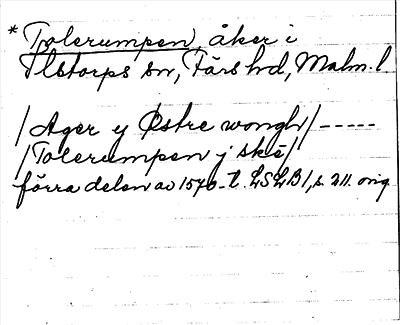 * Tolerumpen, åker i
Ilstorps sn, Färs hd, Malm. l
/Ager y Østre wongh/-----
/Tolerumpen j skò/
förra delen av 1570-t. LSLB 1, s. 211. orig.